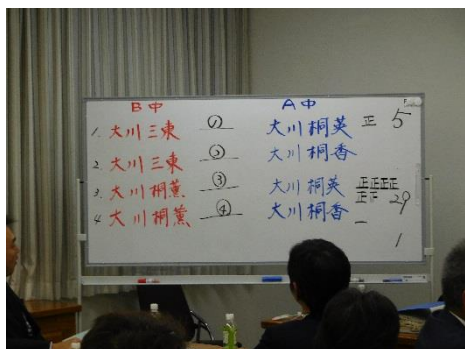 B中 A中
1. 大川三東 ① 大川桐英 正 5
2. 大川三東 ② 大川桐香
3. 大川桐薫 ③ 大川桐英 正正正正正下 29
4 大川桐薫 ④ 大川桐香 一 1